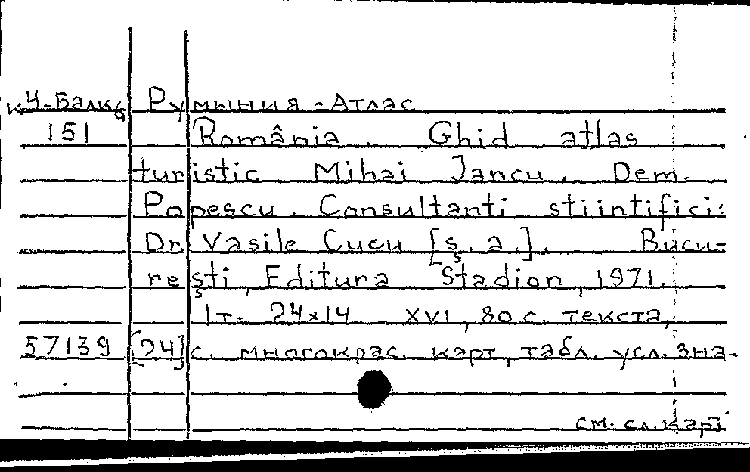 к Ч-Балк6 Румыния - Атлас
151 România. Ghid atlas
turistic Mihai Jancu. Dem.
Popescu. Consultanti stiintifici:
Dr Vasile Cucu [ş. a.]. Bucu-
reşti, Editura "Stadion, 1971.
1т. 24x14 XVI, 80 с. текста,
57139 [24] с. многокрас. карт, табл. усл. зна-
см. сл. карт